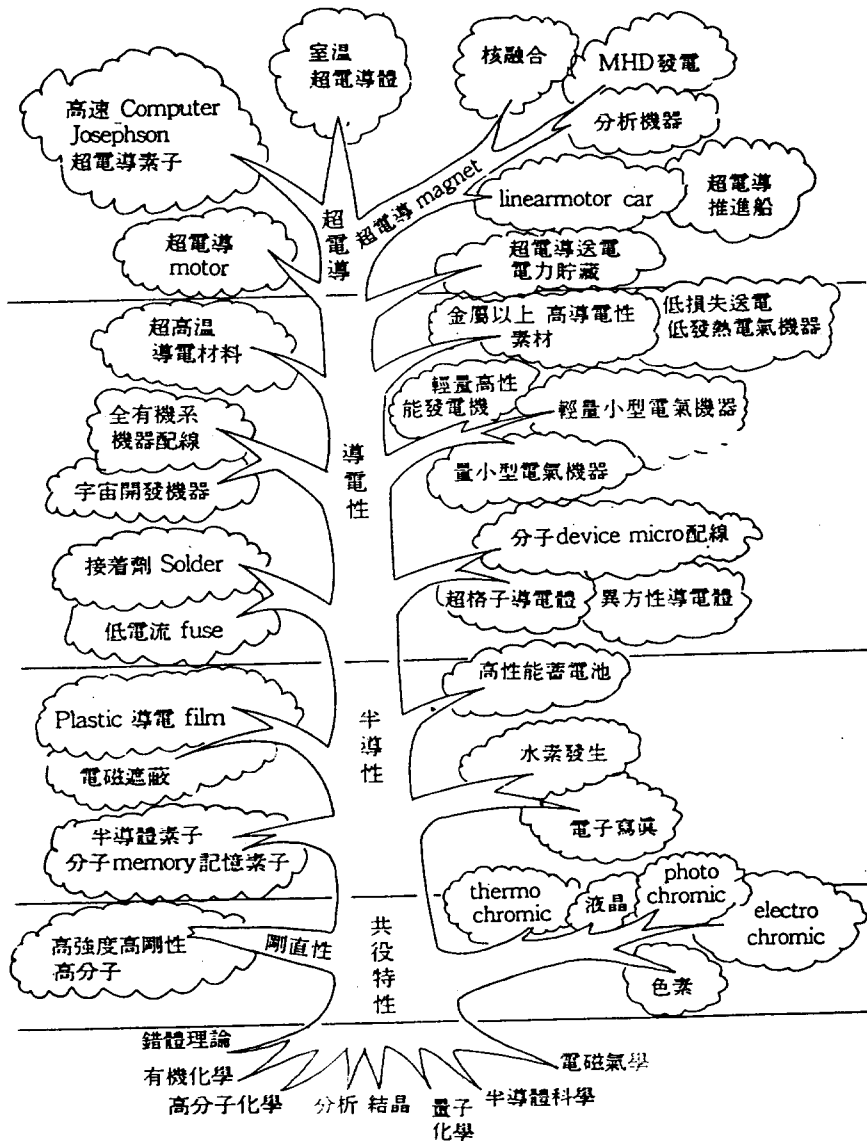 室温
超電導體
核融合
MHD發電
高速 Computer
Josephson
超電導素子
分析機器
超電導 magnet
linearmotor car
超電導
推進船
超電導
超電導
motor
超電導送電
電力貯藏
超高温
導電材料
金屬以上 高導電性
素材
低損失送電
低發熱電氣機器
輕量高性
能發電機
輕量小型電氣機器
全有機系
機器配線
導電性
量小型電氣機器
宇宙開發機器
分子device micro配線
接着劑 Solder
超格子導電體
異方性導電體
低電流 fuse
高性能蓄電池
Plastic 導電 film
半導性
水素發生
電磁遮蔽
電子寫眞
半導體素子
分子memory記憶素子
thermo
chromic
液晶
photo
chromic
electro
chromic
共役特性
剛直性
高強度高剛性
高分子
色素
錯體理論
有機化學
高分子化學
分析
結晶
量子
化學
半導體科學
電磁氣學